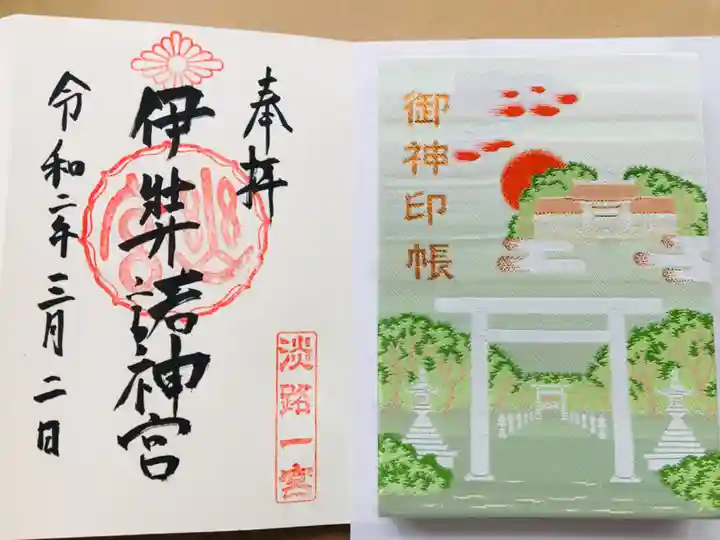 奉拝
伊弉諾神宮
淡路一宮
令和二年三月二日
御神印帳